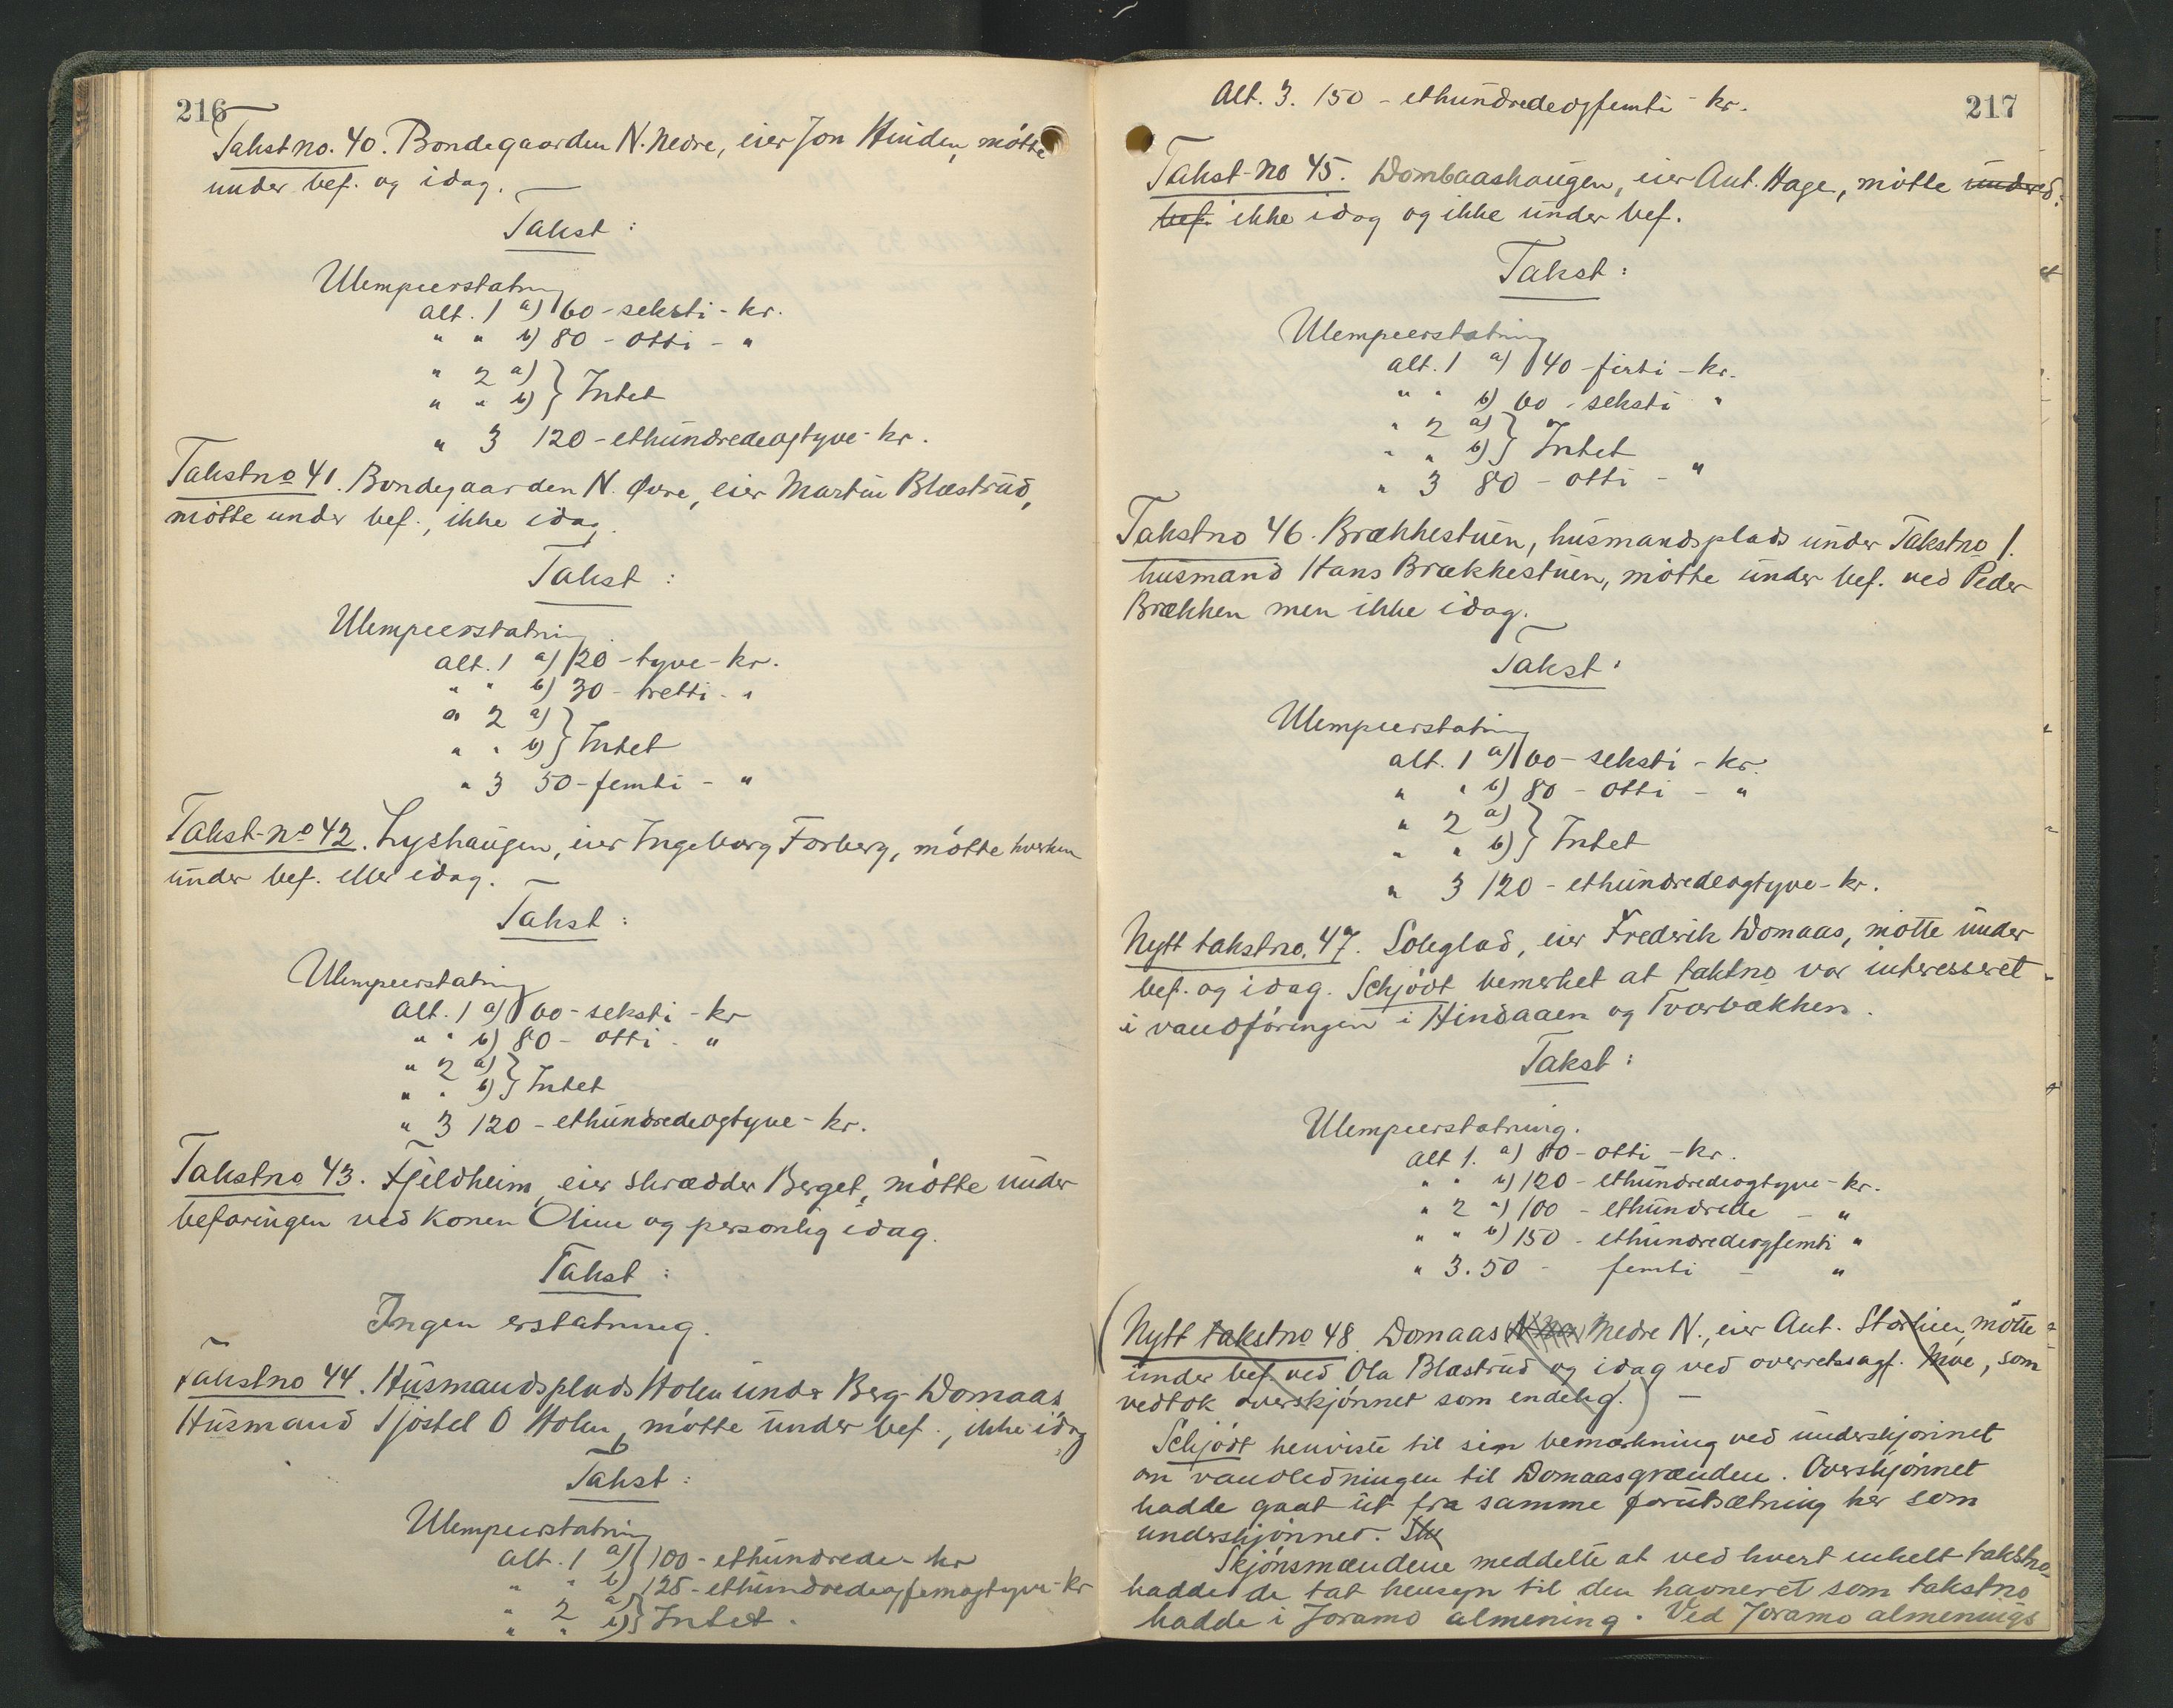 216
Takst no. 40. Bondegaarden N. Nedre, eier Jon Hinden, møtte
under bef. og idag.
Takst:
Ulempeerstatning
alt. 1 a) 60 - seksti - kr.
" " b) 80 - otti - "
" 2 a)
" " b) } Intet
" 3 120 - ethundredeogtyve - kr.
Takstno 41. Bondegaarden N. Øvre, eier Martin Blæstrud,
møtte under bef., ikke idag.
Takst:
Ulempeerstatning.
alt. 1 a) 20 - tyve - kr.
" " b) 30 - tretti - "
" 2 a)
" " b) } Intet
" 3 50 - femti - "
Takst-no 42. Lyshaugen, eier Ingeborg Forberg, møtte hverken
under bef. eller idag.
Takst:
Ulempeerstatning
alt. 1 a) 60 - seksti - kr
" " b) 80 - otti - "
" 2 a)
" " b) } Intet
" 3 120 - ethundredeogtyve - kr.
Takstno 43. Fjeldheim, eier skrædder Berget, møtte under
befaringen ved konen Oline og personlig idag.
Takst:
Ingen erstatning.
Takstno 44. Husmandsplads Holen under Berg-Domaas,
Husmand Sjøstel O Holen, møtte under bef., ikke idag
Takst:
Ulempeerstatning
alt. 1 a) 100 - ethundrede - kr
" " b) 125 - ethundredeogfemogtyve - kr
" 2 a)
" " b) } Intet.
217
Alt. 3. 150 - ethundredeogfemti - kr.
Takst-no 45. Dombaashaugen, eier Ant. Hage, møtte under
bef. ikke idag og ikke under bef.
Takst:
Ulempeerstatning
alt. 1 a) 40 - firti - kr.
" " b) 60 - seksti "
" 2 a)
" " b) } Intet
" 3 80 - otti - "
Takstno 46. Brækkestuen, husmandsplads under Takstno 1.
husmand Hans Brækkestuen, møtte under bef. ved Peder
Brækken men ikke idag.
Takst:
Ulempeerstatning
alt. 1 a) 60 - seksti - kr.
" " b) 80 - otti - "
" 2 a)
" " b) } Intet
" 3 120 - ethundredeogtyve - kr.
Nytt takstno. 47. Soleglad, eier Frederik Domaas, møtte under
bef. og idag. Schjödt bemerket at taktno var interesseret
i vandføringen i Hindaaen og Tværbækken.
Takst:
Ulempeerstatning.
Alt 1. a) 80 - otti - kr.
" " b) 120 - ethundredeogtyve - kr.
" 2 a) 100 - ethundrede - "
" " b) 150 - ethundredeogfemti "
" 3. 50 - femti - "
(Nytt takstno 48. Domaas Nedre N., eier Ant. Storlien, møtte
under bef. ved Ola Blæstrud og idag ved overretssagf. Moe, som
vedtok overskjønnet som endelig.) -
Schjödt henviste til sin bemærkning ved underskjønnet
om vandledningen til Domaasgrænden. Overskjønnet
hadde gaat ut fra samme forutsætning her som
underskjønnet. Sk
Skjønsmændene meddelte at ved hvert enkelt takstno.
hadde de tat hensyn til den havneret som takstno
hadde i Joramo almening. Ved Joramo almenings